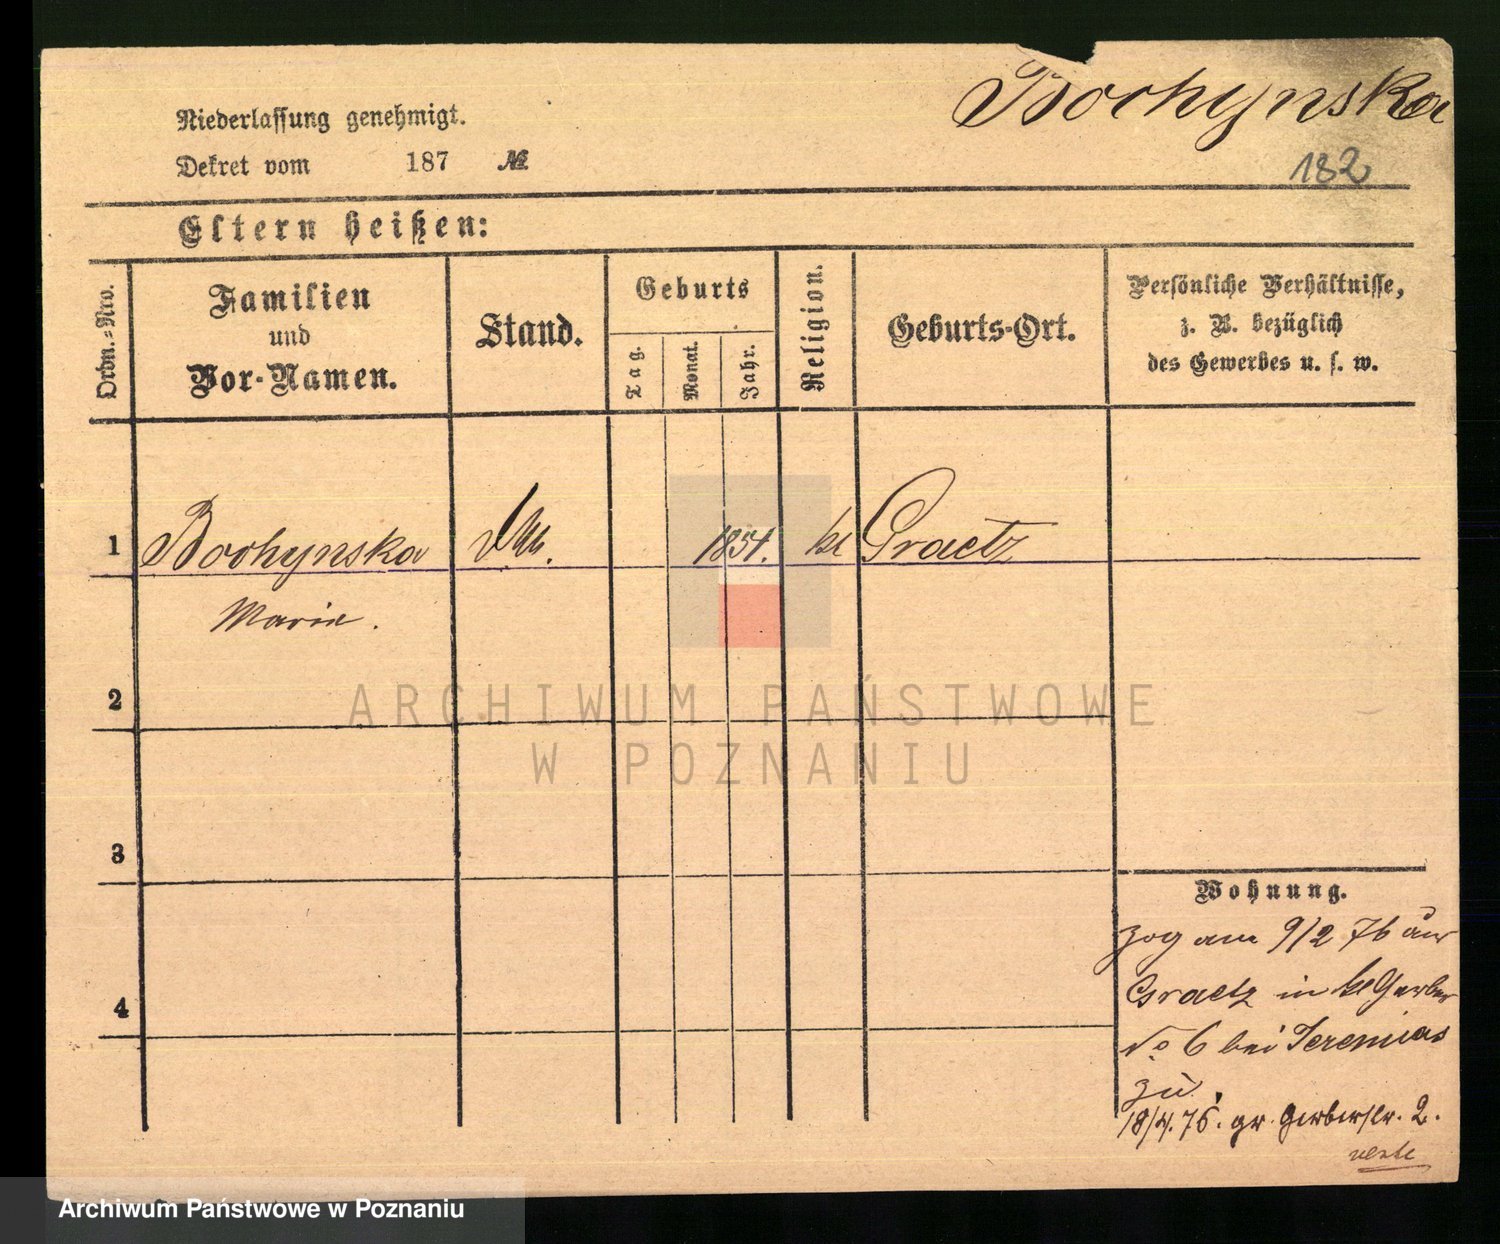 Bochynska
182
Niederlassung genehmigt.
Dekret vom 187 №
Eltern heißen:
Ordn.-Nro.
Familien
und
Vor-Namen.
Stand.
Geburts
Tag.
Monat.
Jahr.
Religion.
Geburts-Ort.
Persönliche Verhältnisse,
z. B. bezüglich
des Gewerbes u. s. w.
1 Bochynska 1854. kt Graetz
Marie.
2
3
4
Wohnung.
zog am 9/2 76 aus
Graetz in kl Gerber
No 6 bei Jeremias
zu.
18/4. 76. gr. Gerberstr. 2.
verte
ARCHIWUM PAŃSTWOWE
W POZNANIU
Archiwum Państwowe w Poznaniu